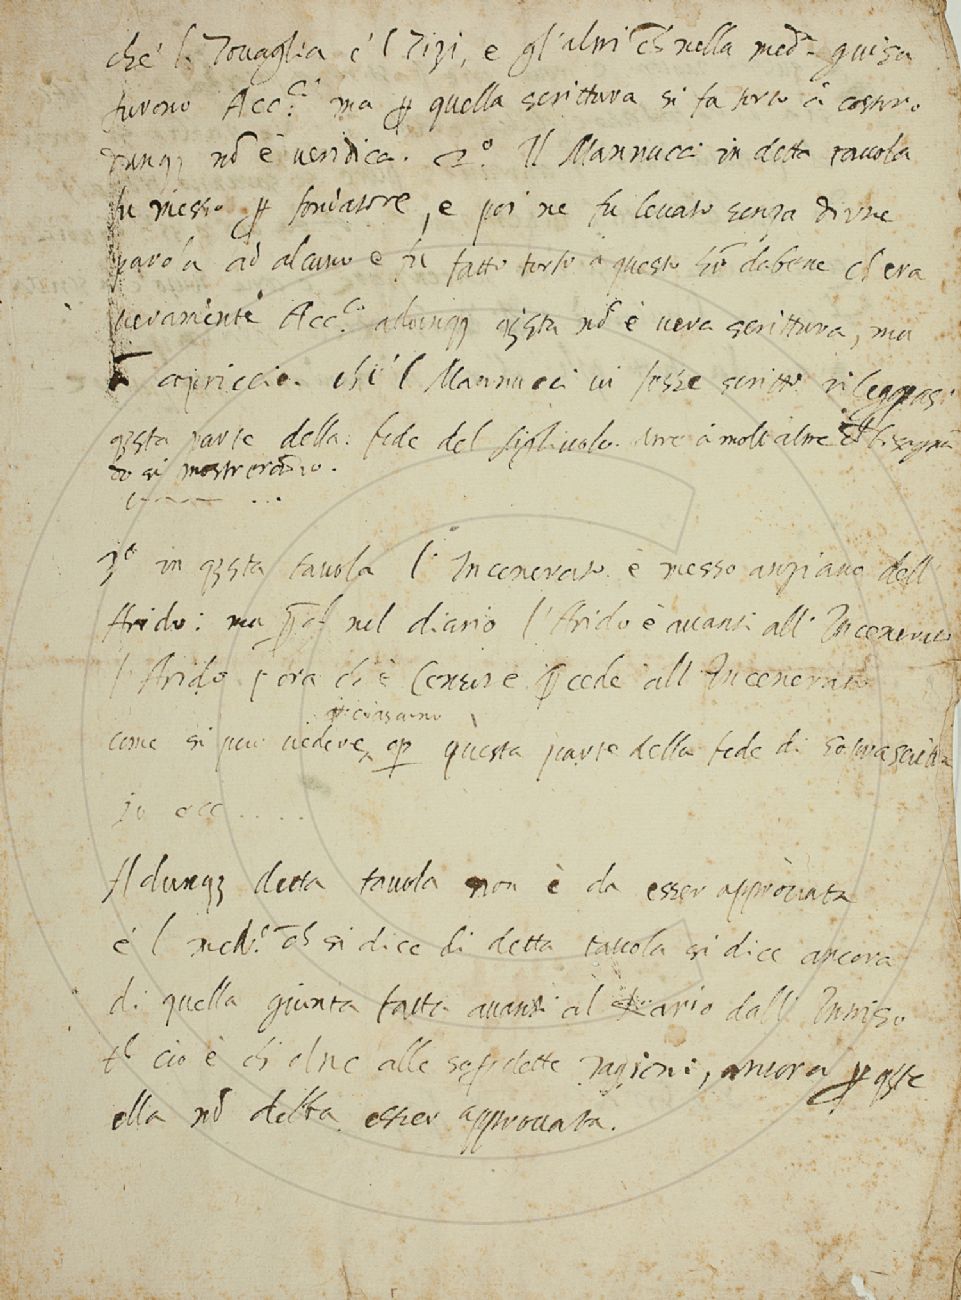 che l Tovaglia e l Tizi, e gl'altri ch nella med.ª guisa
furono Acc.ci ma p quella scrittura si fa torto à costoro
dunq; nō è veridica. 2.º Il Mannucci in detta tavola
fu messo p fondatore, e poi ne fu levato senza dirne
parola ad alcuno e fu fatto torto a questo hō dabene ch era
veramente Acc.co adunq; q;sta nō è vera scrittura, ma
capriccio. che l Mannucci vi fosse scritto rileggasi
q;sta parte della fede del altre à molt altre ch bisognā
do si mostrerāno.
3º in q;sta tavola l'Incenerato è messo anziano dell'
Arido: ma nel diario l'Arido è avanti all'Incenerato
l'Arido ora ch'è Censore pcede all'Incenerato
come si può vedere questa parte della fede di sopra
Io ecc ....
Adunq; detta tavola non è da esser approvata
e l med.º ch si dice di detta tavola si dice ancora
di quella giunta fatta avanti al diario dall'
ciò è ch oltre alle sopdette ragioni, ancora p q;ste
ella nō debba esser approvata.